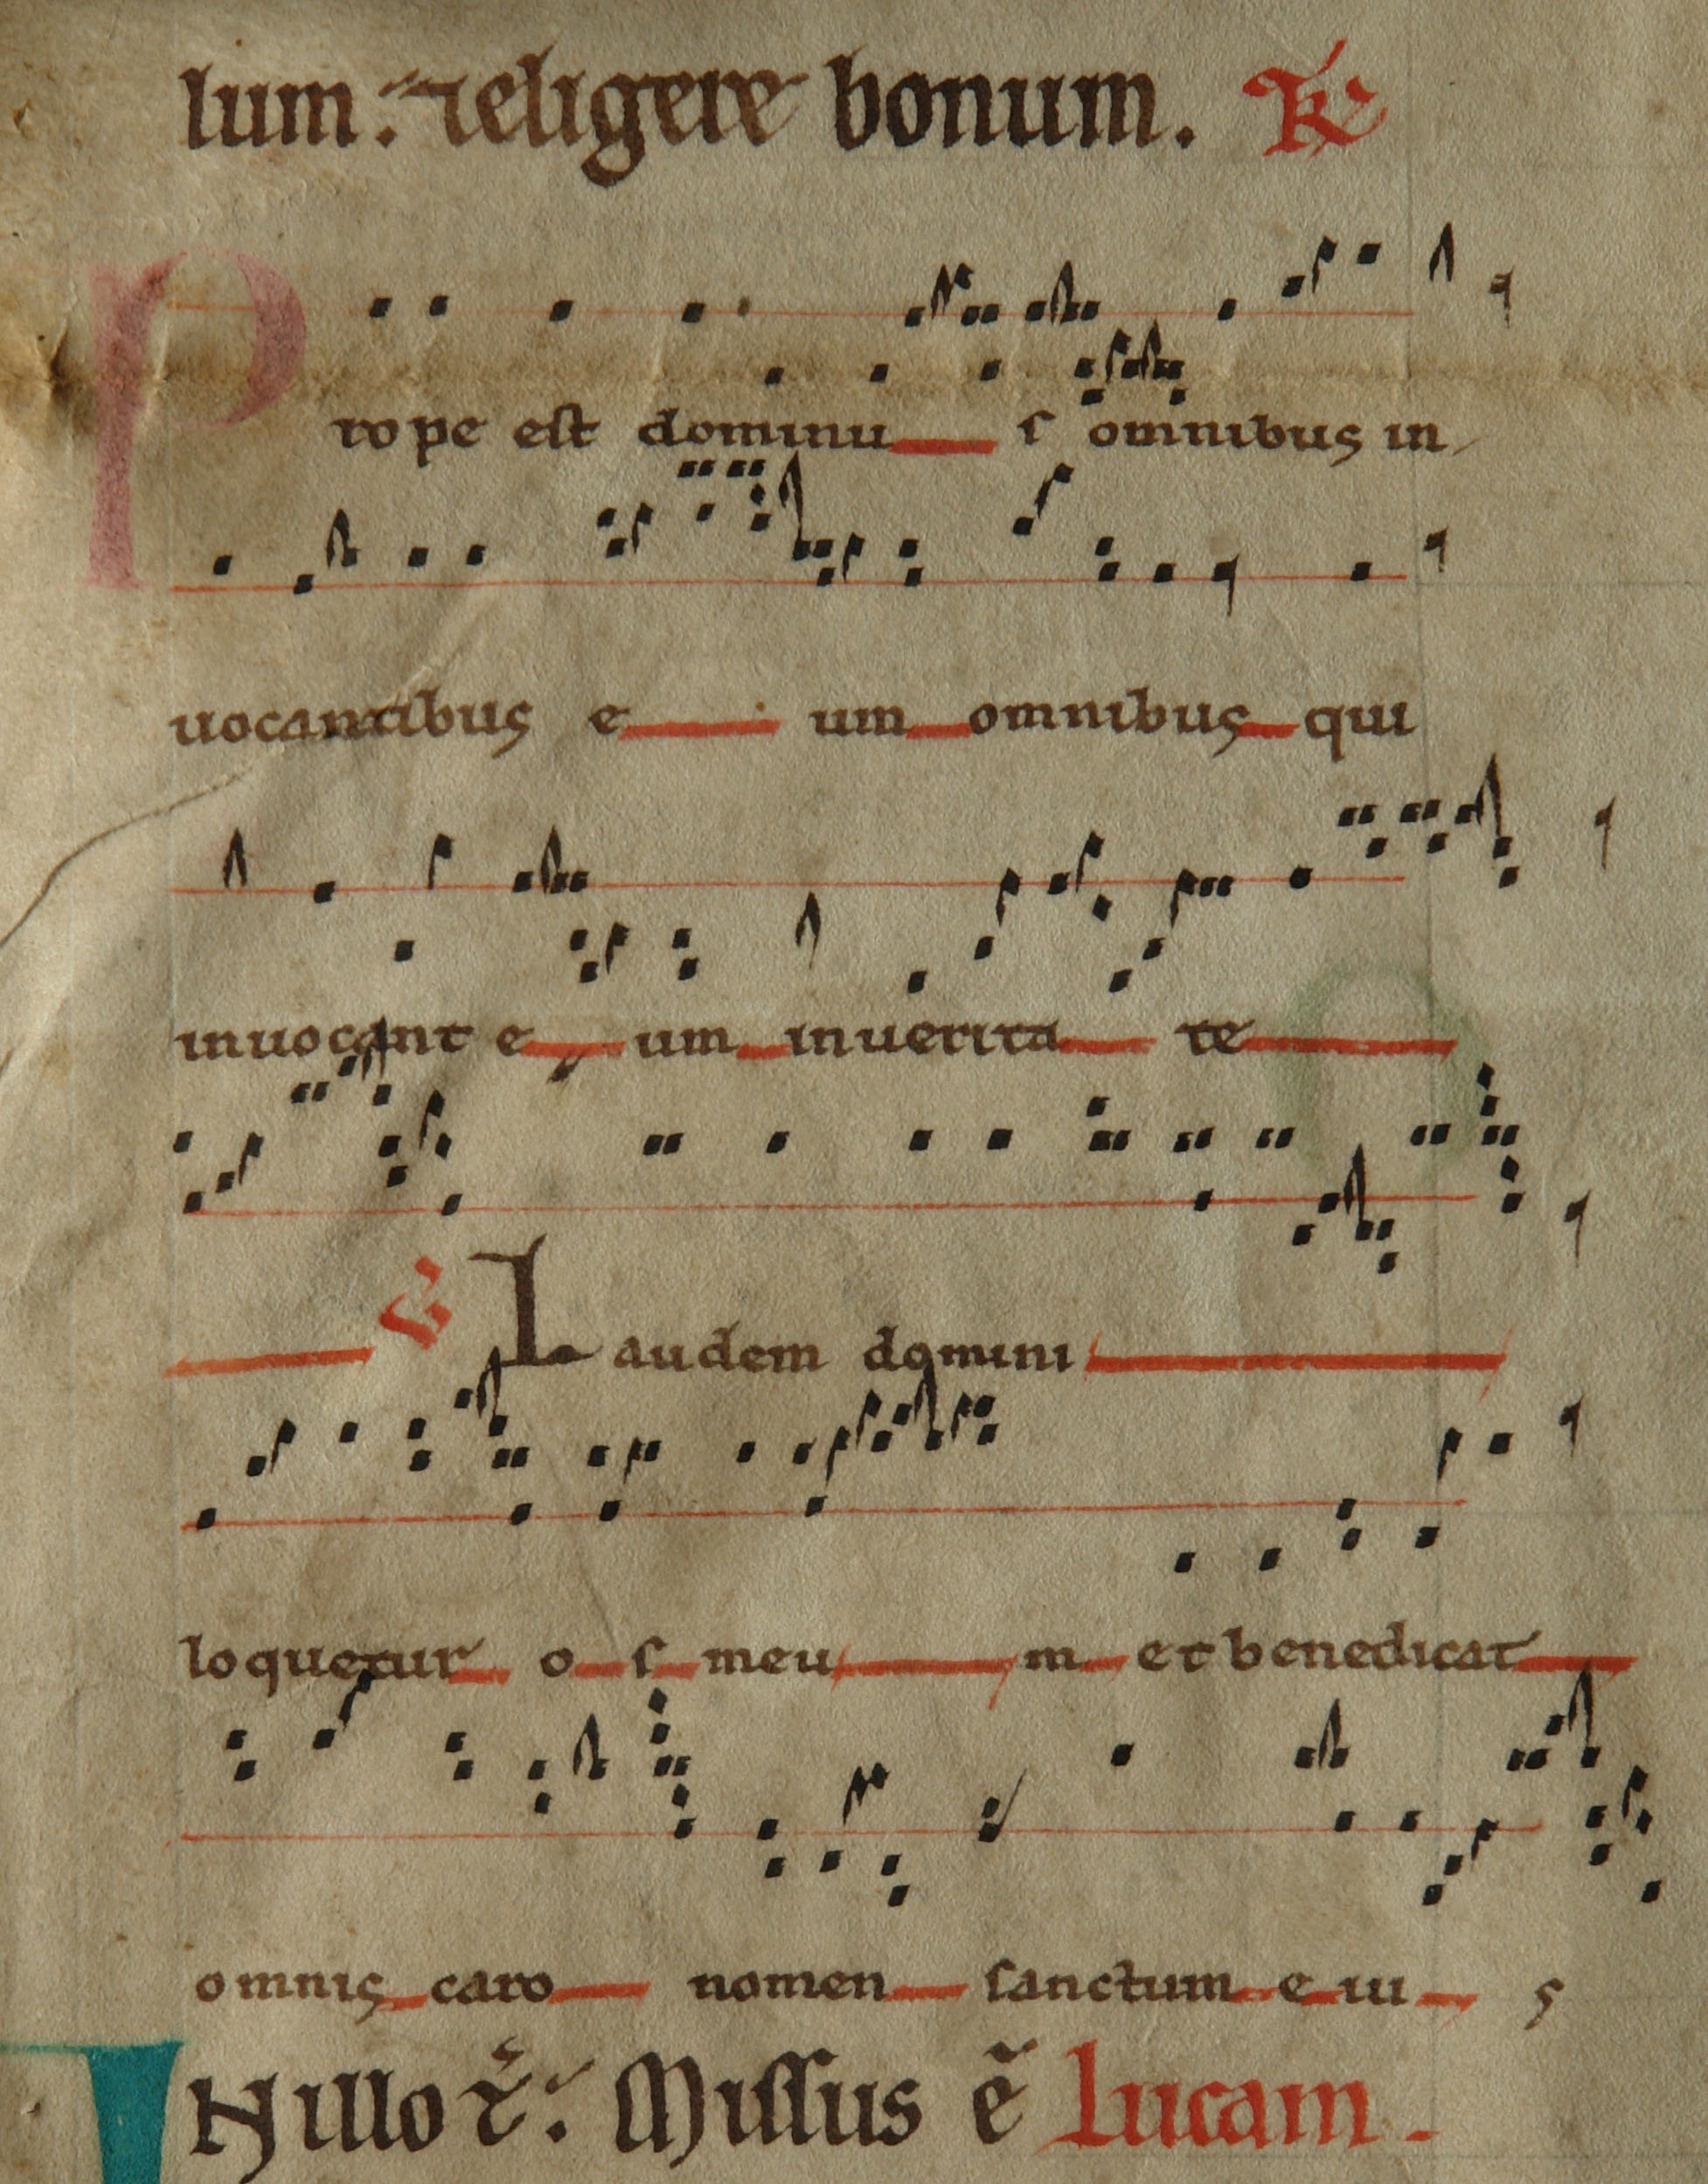 lum. ⁊eligere bonum. R
Prope est dominus omnibus in
uocantibus eum omnibus qui
inuocant eum inuerita te
V Laudem domini
loquetur os meum et benedicat
omnis caro nomen sanctum eius
INillo t̄. Missus ē lucam.